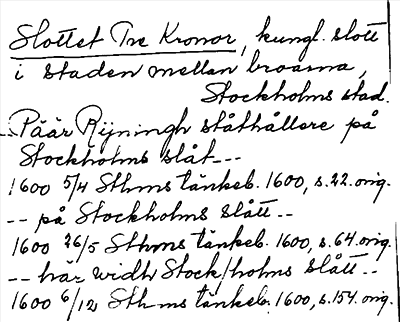 Slottet Tre Kronor, kungl. slott
i staden mellan broarna,
Stockholms stad.
-- Päär Rijningh ståthållere på
Stockholms slåt ---
1600 5/4 Sthms tänkeb. 1600, s. 22. orig.
-- på Stockholms slått --
1600 26/5 Sthms tänkeb. 1600, s. 64. orig.
-- här widh Stock/holms slått --
1600 6/12 Sthms tänkeb. 1600, s. 154. orig.